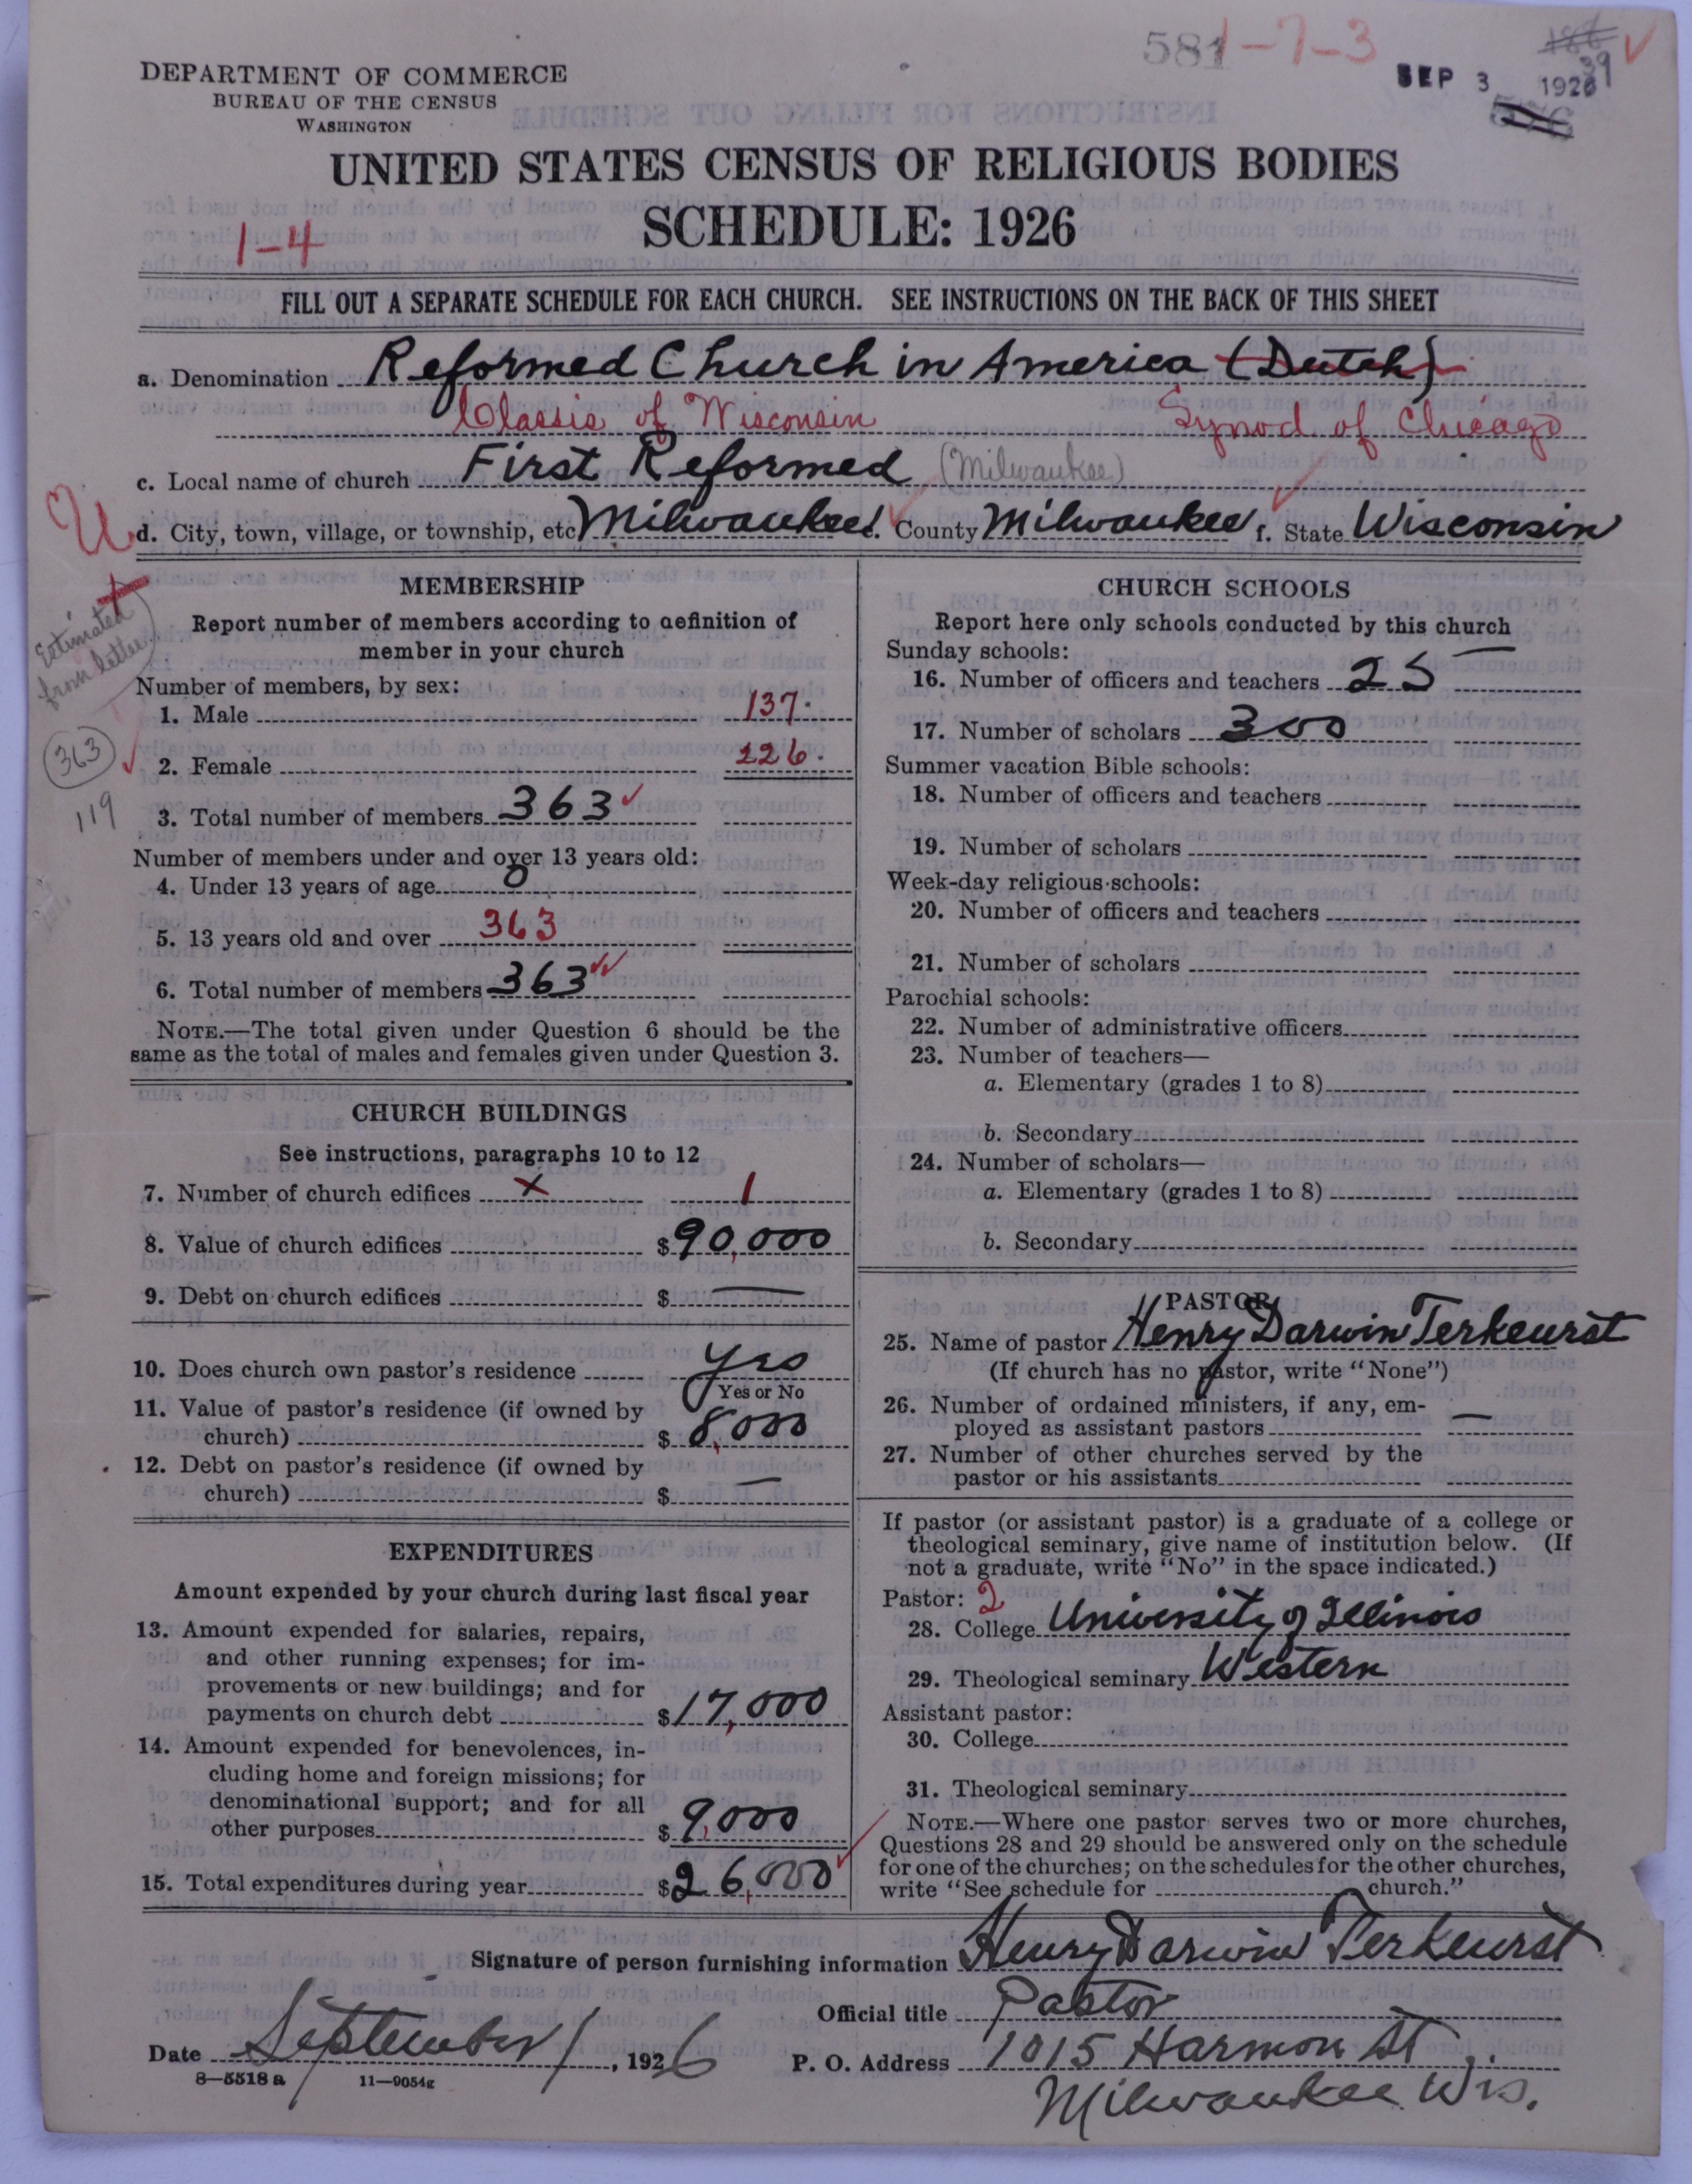 581 1-7-3
186
39
SEP 3 1926
576
DEPARTMENT OF COMMERCE
BUREAU OF THE CENSUS
WASHINGTON
UNITED STATES CENSUS OF RELIGIOUS BODIES
SCHEDULE: 1926
1-4
FILL OUT A SEPARATE SCHEDULE FOR EACH CHURCH. SEE INSTRUCTIONS ON THE BACK OF THIS SHEET
a. Denomination Reformed Church in America (Dutch)
Classis of Wisconsin Synod of Chicago
c. Local name of church First Reformed (Milwaukee)
U d. City, town, village, or township, etc Milwaukee e. County Milwaukee f. State Wisconsin
MEMBERSHIP
Report number of members according to definition of
member in your church
Estimated
from letter
Number of members, by sex:
1. Male 137.
363
2. Female 226.
119
3. Total number of members 363
Number of members under and over 13 years old:
4. Under 13 years of age 0
5. 13 years old and over 363
6. Total number of members 363
NOTE.—The total given under Question 6 should be the
same as the total of males and females given under Question 3.
CHURCH BUILDINGS
See instructions, paragraphs 10 to 12
7. Number of church edifices x 1
8. Value of church edifices $90,000
9. Debt on church edifices $ —
10. Does church own pastor's residence yes
Yes or No
11. Value of pastor's residence (if owned by
church) $ 8,000
12. Debt on pastor's residence (if owned by
church) $ —
EXPENDITURES
Amount expended by your church during last fiscal year
13. Amount expended for salaries, repairs,
and other running expenses; for im-
provements or new buildings; and for
payments on church debt $17,000
14. Amount expended for benevolences, in-
cluding home and foreign missions; for
denominational support; and for all
other purposes $ 9,000
15. Total expenditures during year $26,000
CHURCH SCHOOLS
Report here only schools conducted by this church
Sunday schools:
16. Number of officers and teachers 25
17. Number of scholars 300
Summer vacation Bible schools:
18. Number of officers and teachers
19. Number of scholars
Week-day religious schools:
20. Number of officers and teachers
21. Number of scholars
Parochial schools:
22. Number of administrative officers
23. Number of teachers—
a. Elementary (grades 1 to 8)
b. Secondary
24. Number of scholars—
a. Elementary (grades 1 to 8)
b. Secondary
PASTOR
25. Name of pastor Henry Darwin Terkeurst
(If church has no pastor, write "None")
26. Number of ordained ministers, if any, em-
ployed as assistant pastors —
27. Number of other churches served by the
pastor or his assistants
If pastor (or assistant pastor) is a graduate of a college or
theological seminary, give name of institution below. (If
not a graduate, write "No" in the space indicated.)
Pastor: 2
28. College University of Illinois
29. Theological seminary Western
Assistant pastor:
30. College
31. Theological seminary
NOTE.—Where one pastor serves two or more churches,
Questions 28 and 29 should be answered only on the schedule
for one of the churches; on the schedules for the other churches,
write "See schedule for church."
Signature of person furnishing information Henry Darwin Terkeurst
Official title Pastor
Date September 1, 1926 P. O. Address 1015 Harmon St.
8—5518 a 11—9054g
Milwaukee Wis.